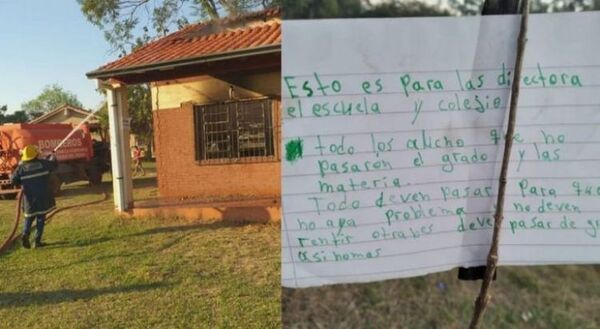 BOMBEROS
Esto es para las directora
el escuela y colegio
todo los alucho que no
pasaron el grado y las
materia.
Todo deven pasar para que
no aya problema no deven
rentir otrabes deve pasar de gra
asi nomas